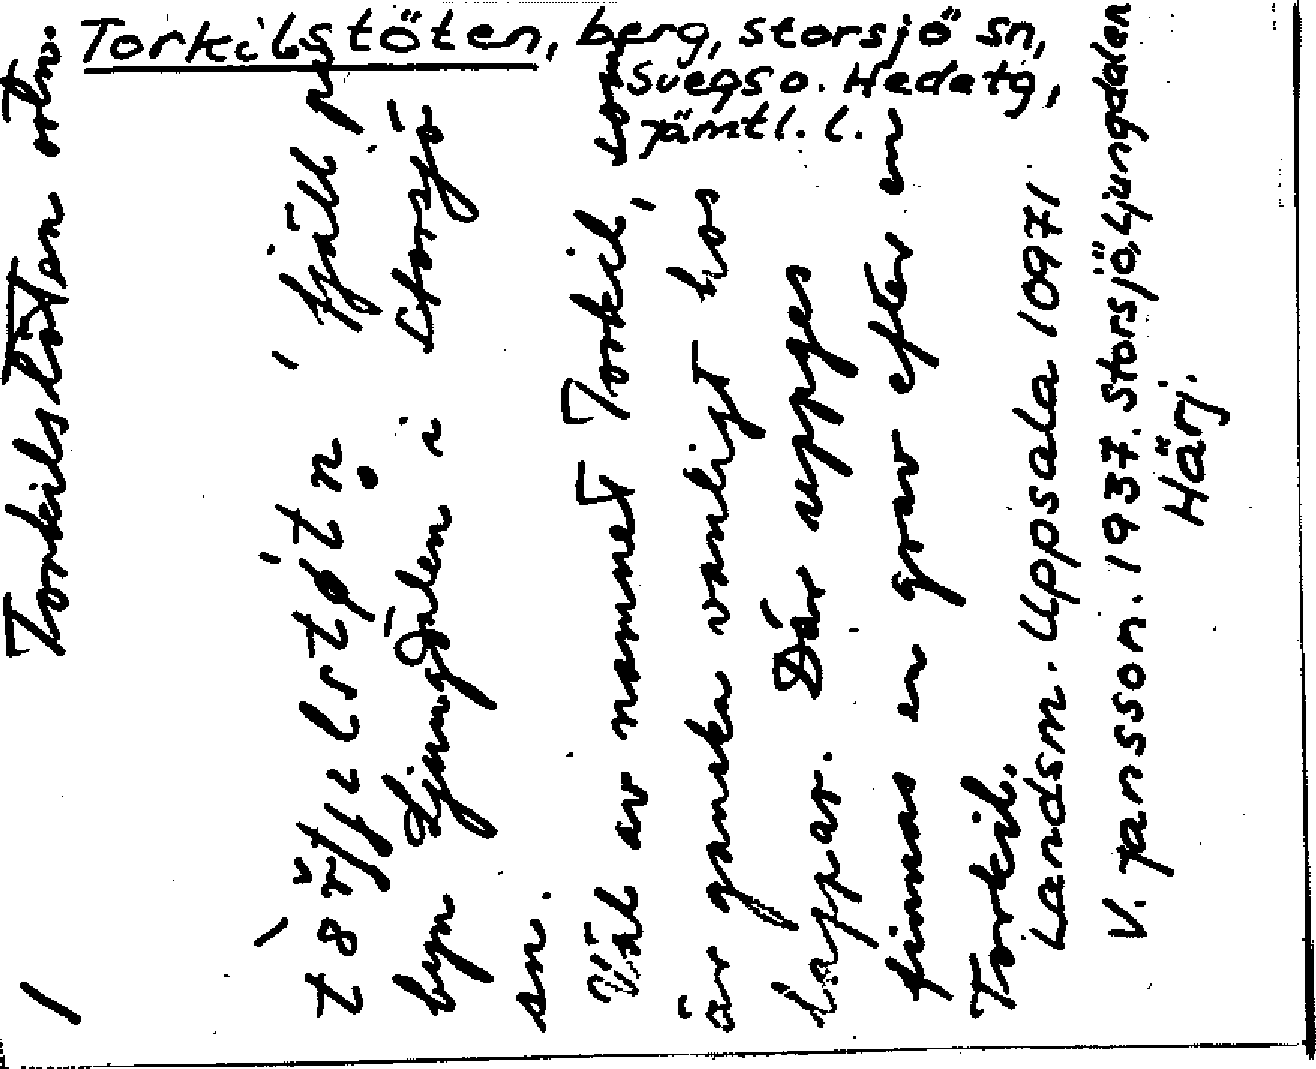 Torkilstöten, berg, Storsjö sn,
Svegs o. Hedetg,
Jämtl. l.
Torkilstöten otn.
fjäll på
byn Ljungdalen i Storsjö
sn.
Väl av namnet Torkil, som
är ganska vanligt hos
lappar. Där uppges
finnas en grav efter en
Torkil.
Landsm. Uppsala 10971
V. Jansson. 1937. Storsjö, Ljungdalen
Härj.